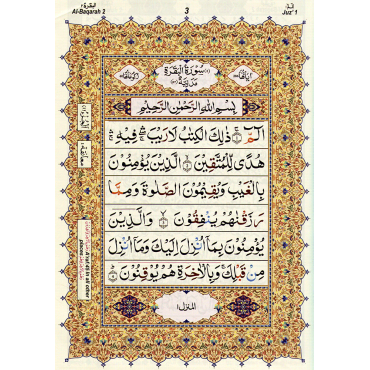 البقرة ٢
Al-Baqarah 2
3
Juz' 1
سُوْرَةُ الْبَقَرَةِ
مَدَنِيَّةٌ
بِسْمِ اللهِ الرَّحْمٰنِ الرَّحِيْمِ
الٓمّٓ ذٰلِكَ الْكِتٰبُ لَا رَيْبَ فِيْهِ
هُدًى لِّلْمُتَّقِيْنَ الَّذِيْنَ يُؤْمِنُوْنَ
بِالْغَيْبِ وَيُقِيْمُوْنَ الصَّلٰوةَ وَمِمَّا
رَزَقْنٰهُمْ يُنْفِقُوْنَ وَالَّذِيْنَ
يُؤْمِنُوْنَ بِمَآ اُنْزِلَ اِلَيْكَ وَمَآ اُنْزِلَ
مِنْ قَبْلِكَ وَبِالْاٰخِرَةِ هُمْ يُوْقِنُوْنَ
المنزل ١